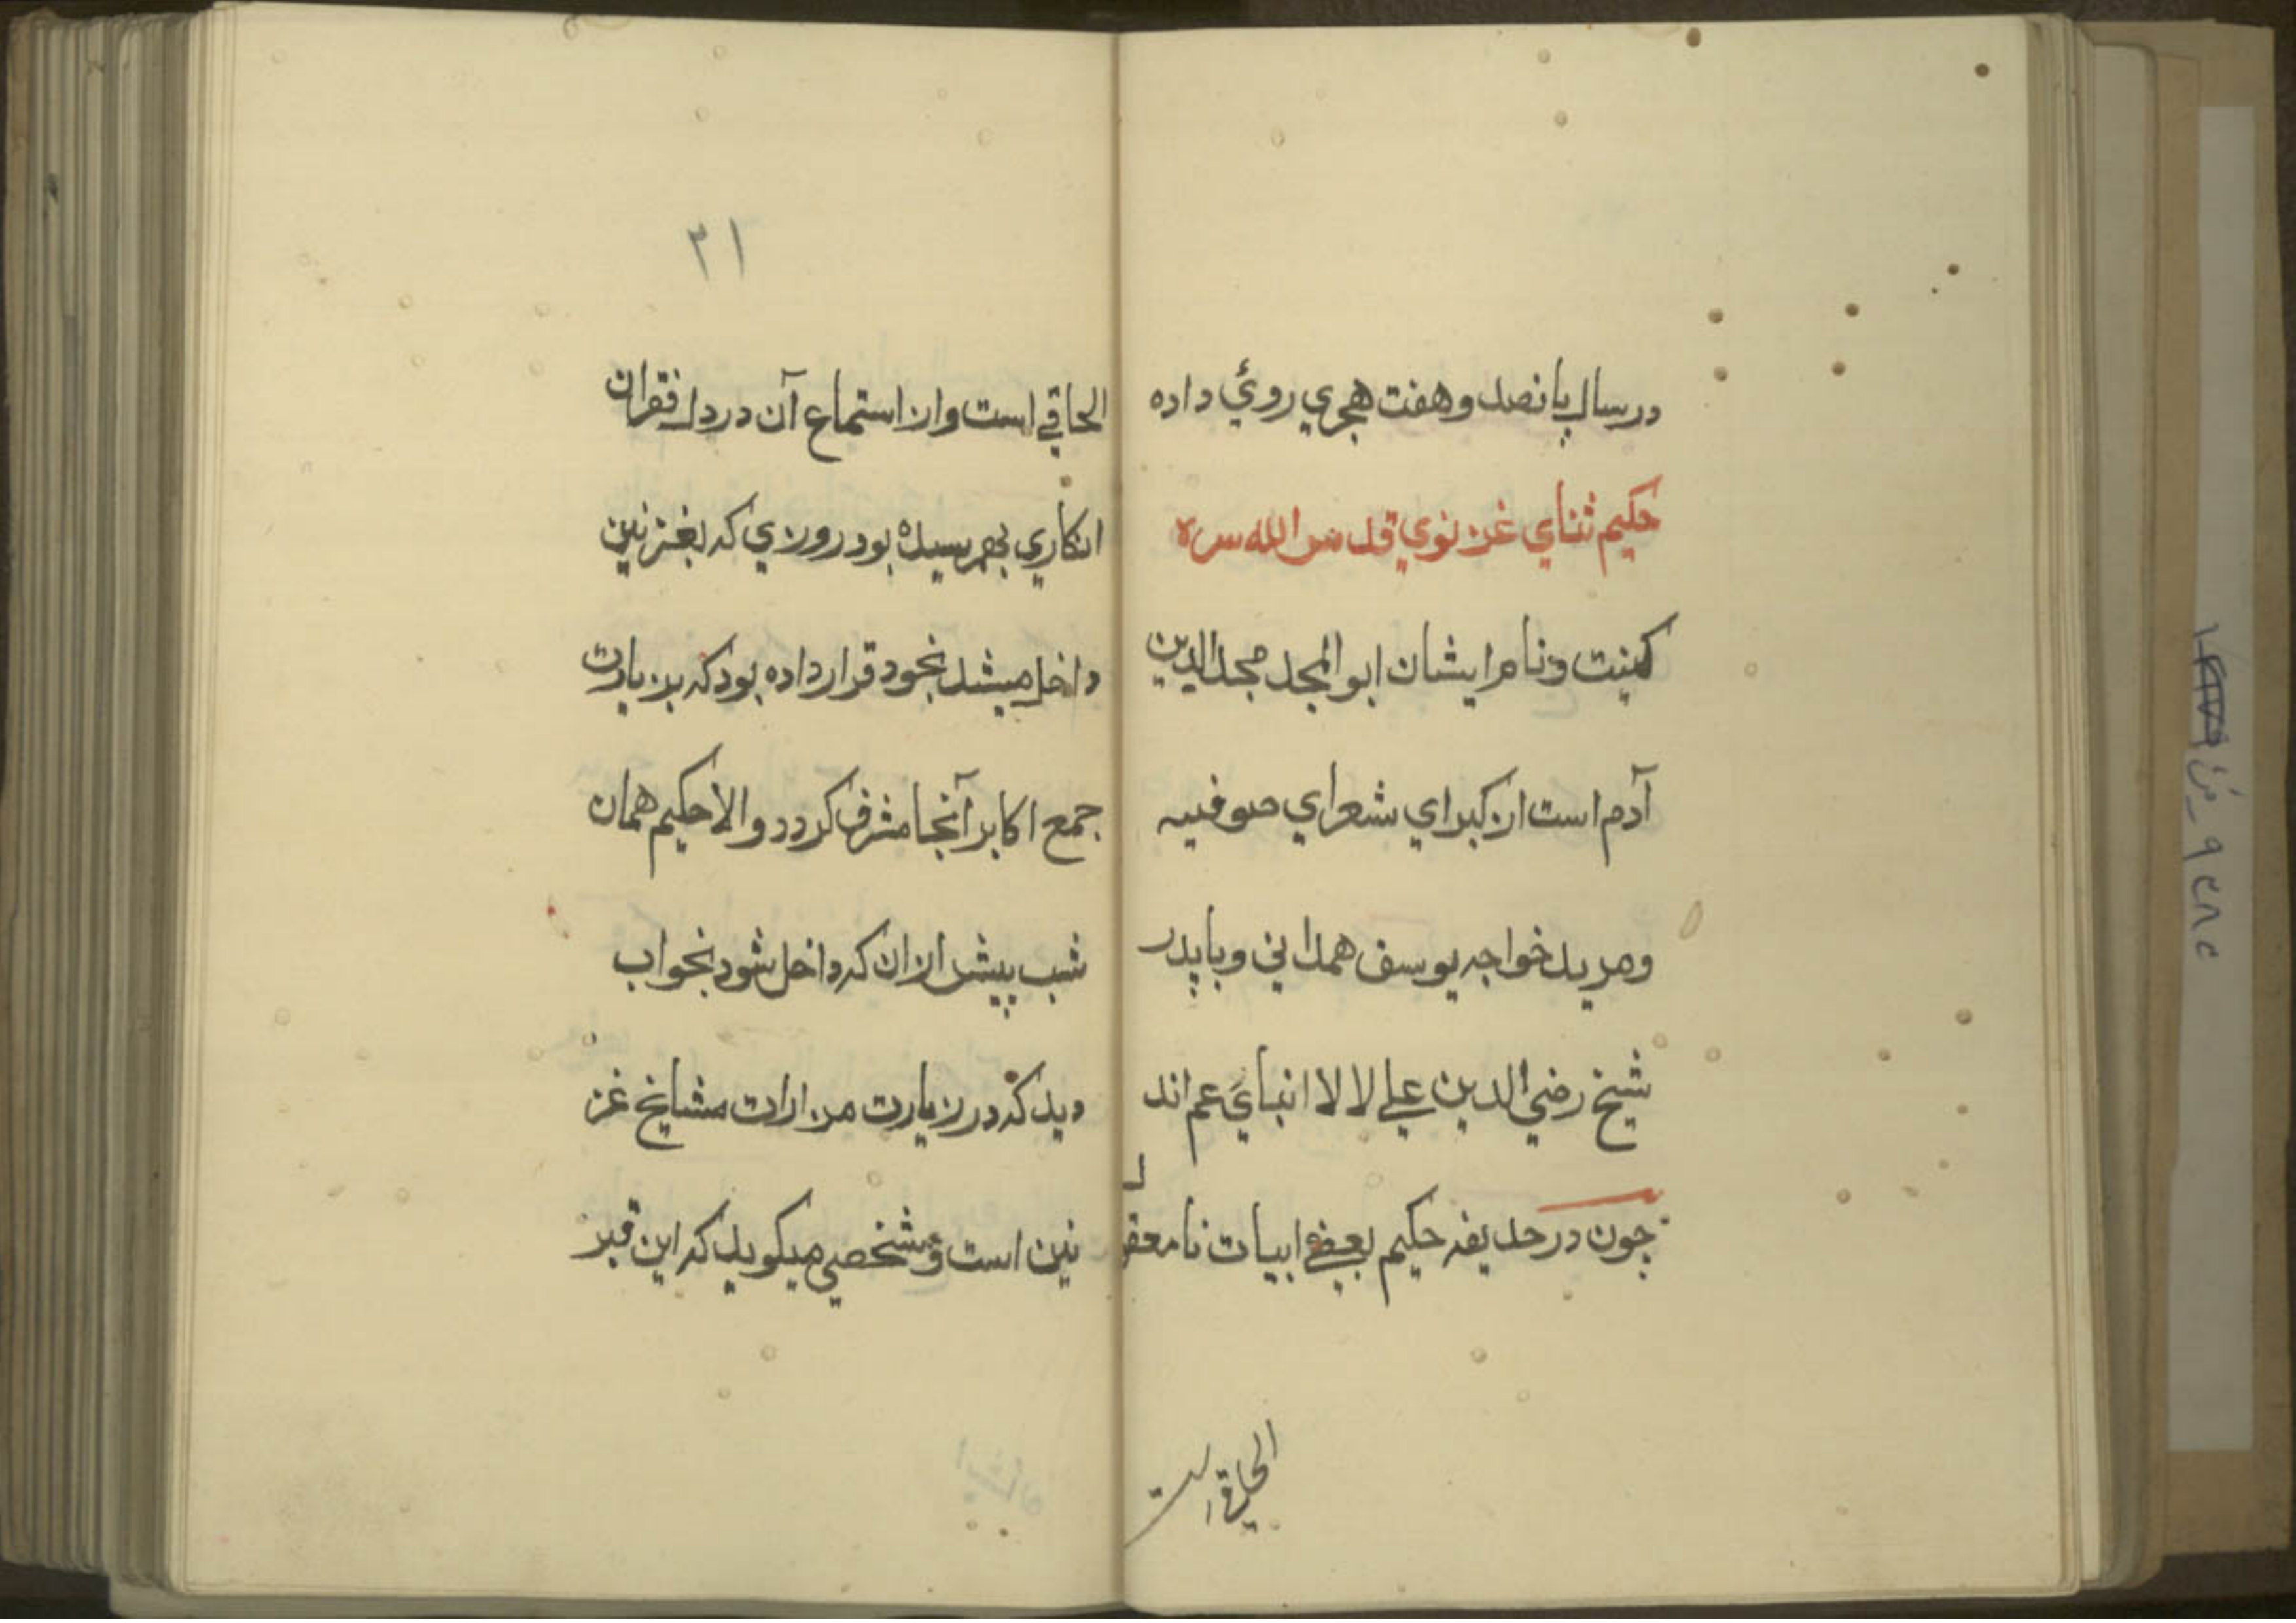 در سال پانصد و هفت هجري روئي داده
حكيم ثناي غزنوي قدس الله سره
كنيت و نام ايشان ابو المجد مجد الدين
آدم است از كبراي شعراي صوفيه
و مريد خواجه يوسف همداني و با پدر
شيخ رضي الدين علي لالا انباي عم اند
چون در حديقه حكيم بعضي ابيات نامعقول
الحاقي است
٢١
الحاقي است و از استماع آن در دل فقران
انكاري بهم رسيده بود روزي كه بغزنين
داخل ميشد بخود قرار داده بود كه بزيارت
جمع اكابر آنجا مشرف كردد و الا حكيم همان
شب پيش ازان كه داخل شود بخواب
ديد كه در زيارت مزارات مشايخ غز
نين است و شخصي ميكويد كه اين قبر